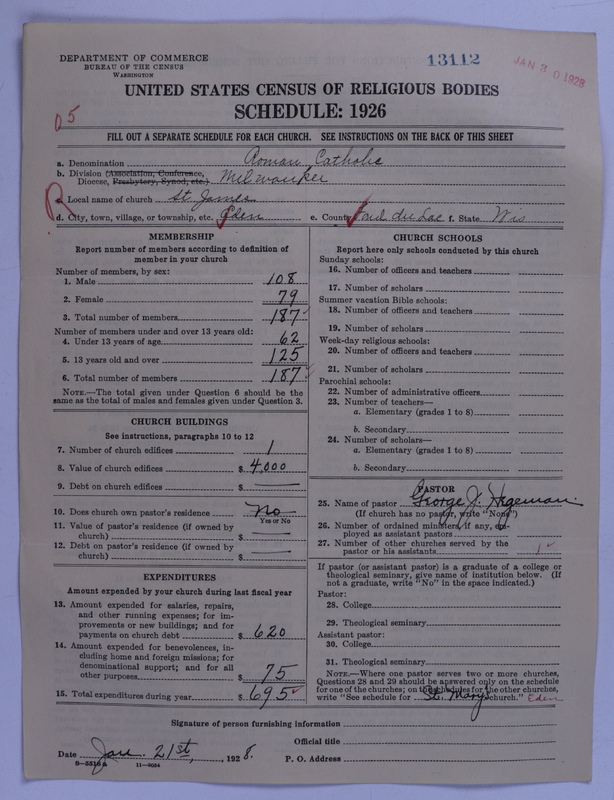 DEPARTMENT OF COMMERCE
BUREAU OF THE CENSUS
WASHINGTON
13112
JAN 30 1928
UNITED STATES CENSUS OF RELIGIOUS BODIES
SCHEDULE: 1926
05
FILL OUT A SEPARATE SCHEDULE FOR EACH CHURCH. SEE INSTRUCTIONS ON THE BACK OF THIS SHEET
a. Denomination Roman Catholic
b. Division (Association, Conference,
Diocese, Presbytery, Synod, etc.) Milwaukee
R c. Local name of church St. James
d. City, town, village, or township, etc. Eden e. County Fond du Lac f. State Wis
MEMBERSHIP
Report number of members according to definition of
member in your church
Number of members, by sex:
1. Male 108
2. Female 79
3. Total number of members 187
Number of members under and over 13 years old:
4. Under 13 years of age 62
5. 13 years old and over 125
6. Total number of members 187
NOTE.—The total given under Question 6 should be
same as the total of males and females given under Question 3.
CHURCH BUILDINGS
See instructions, paragraphs 10 to 12
7. Number of church edifices 1
8. Value of church edifices $ 4,000
9. Debt on church edifices $
10. Does church own pastor's residence No
Yes or No
11. Value of pastor's residence (if owned by
church) $
12. Debt on pastor's residence (if owned by
church) $
EXPENDITURES
Amount expended by your church during last fiscal year
13. Amount expended for salaries, repairs,
and other running expenses; for im-
provements or new buildings; and for
payments on church debt $ 620
14. Amount expended for benevolences, in-
cluding home and foreign missions; for
denominational support; and for all
other purposes $ 75
15. Total expenditures during year $ 695
CHURCH SCHOOLS
Report here only schools conducted by this church
Sunday schools:
16. Number of officers and teachers
17. Number of scholars
Summer vacation Bible schools:
18. Number of officers and teachers
19. Number of scholars
Week-day religious schools:
20. Number of officers and teachers
21. Number of scholars
Parochial schools:
22. Number of administrative officers
23. Number of teachers—
a. Elementary (grades 1 to 8)
b. Secondary
24. Number of scholars—
a. Elementary (grades 1 to 8)
b. Secondary
PASTOR
25. Name of pastor George J. Hegeman
(If church has no pastor, write "None")
26. Number of ordained ministers, if any, em-
ployed as assistant pastors
27. Number of other churches served by the
pastor or his assistants 1
If pastor (or assistant pastor) is a graduate of a college or
theological seminary, give name of institution below. (If
not a graduate, write "No" in the space indicated.)
Pastor:
28. College
29. Theological seminary
Assistant pastor:
30. College
31. Theological seminary
NOTE.—Where one pastor serves two or more churches,
Questions 28 and 29 should be answered only on the schedule
for one of the churches; on the schedules for the other churches,
write "See schedule for St. Mary's church." Eden
Signature of person furnishing information
Official title
Date Jan. 21st, 1928. P. O. Address